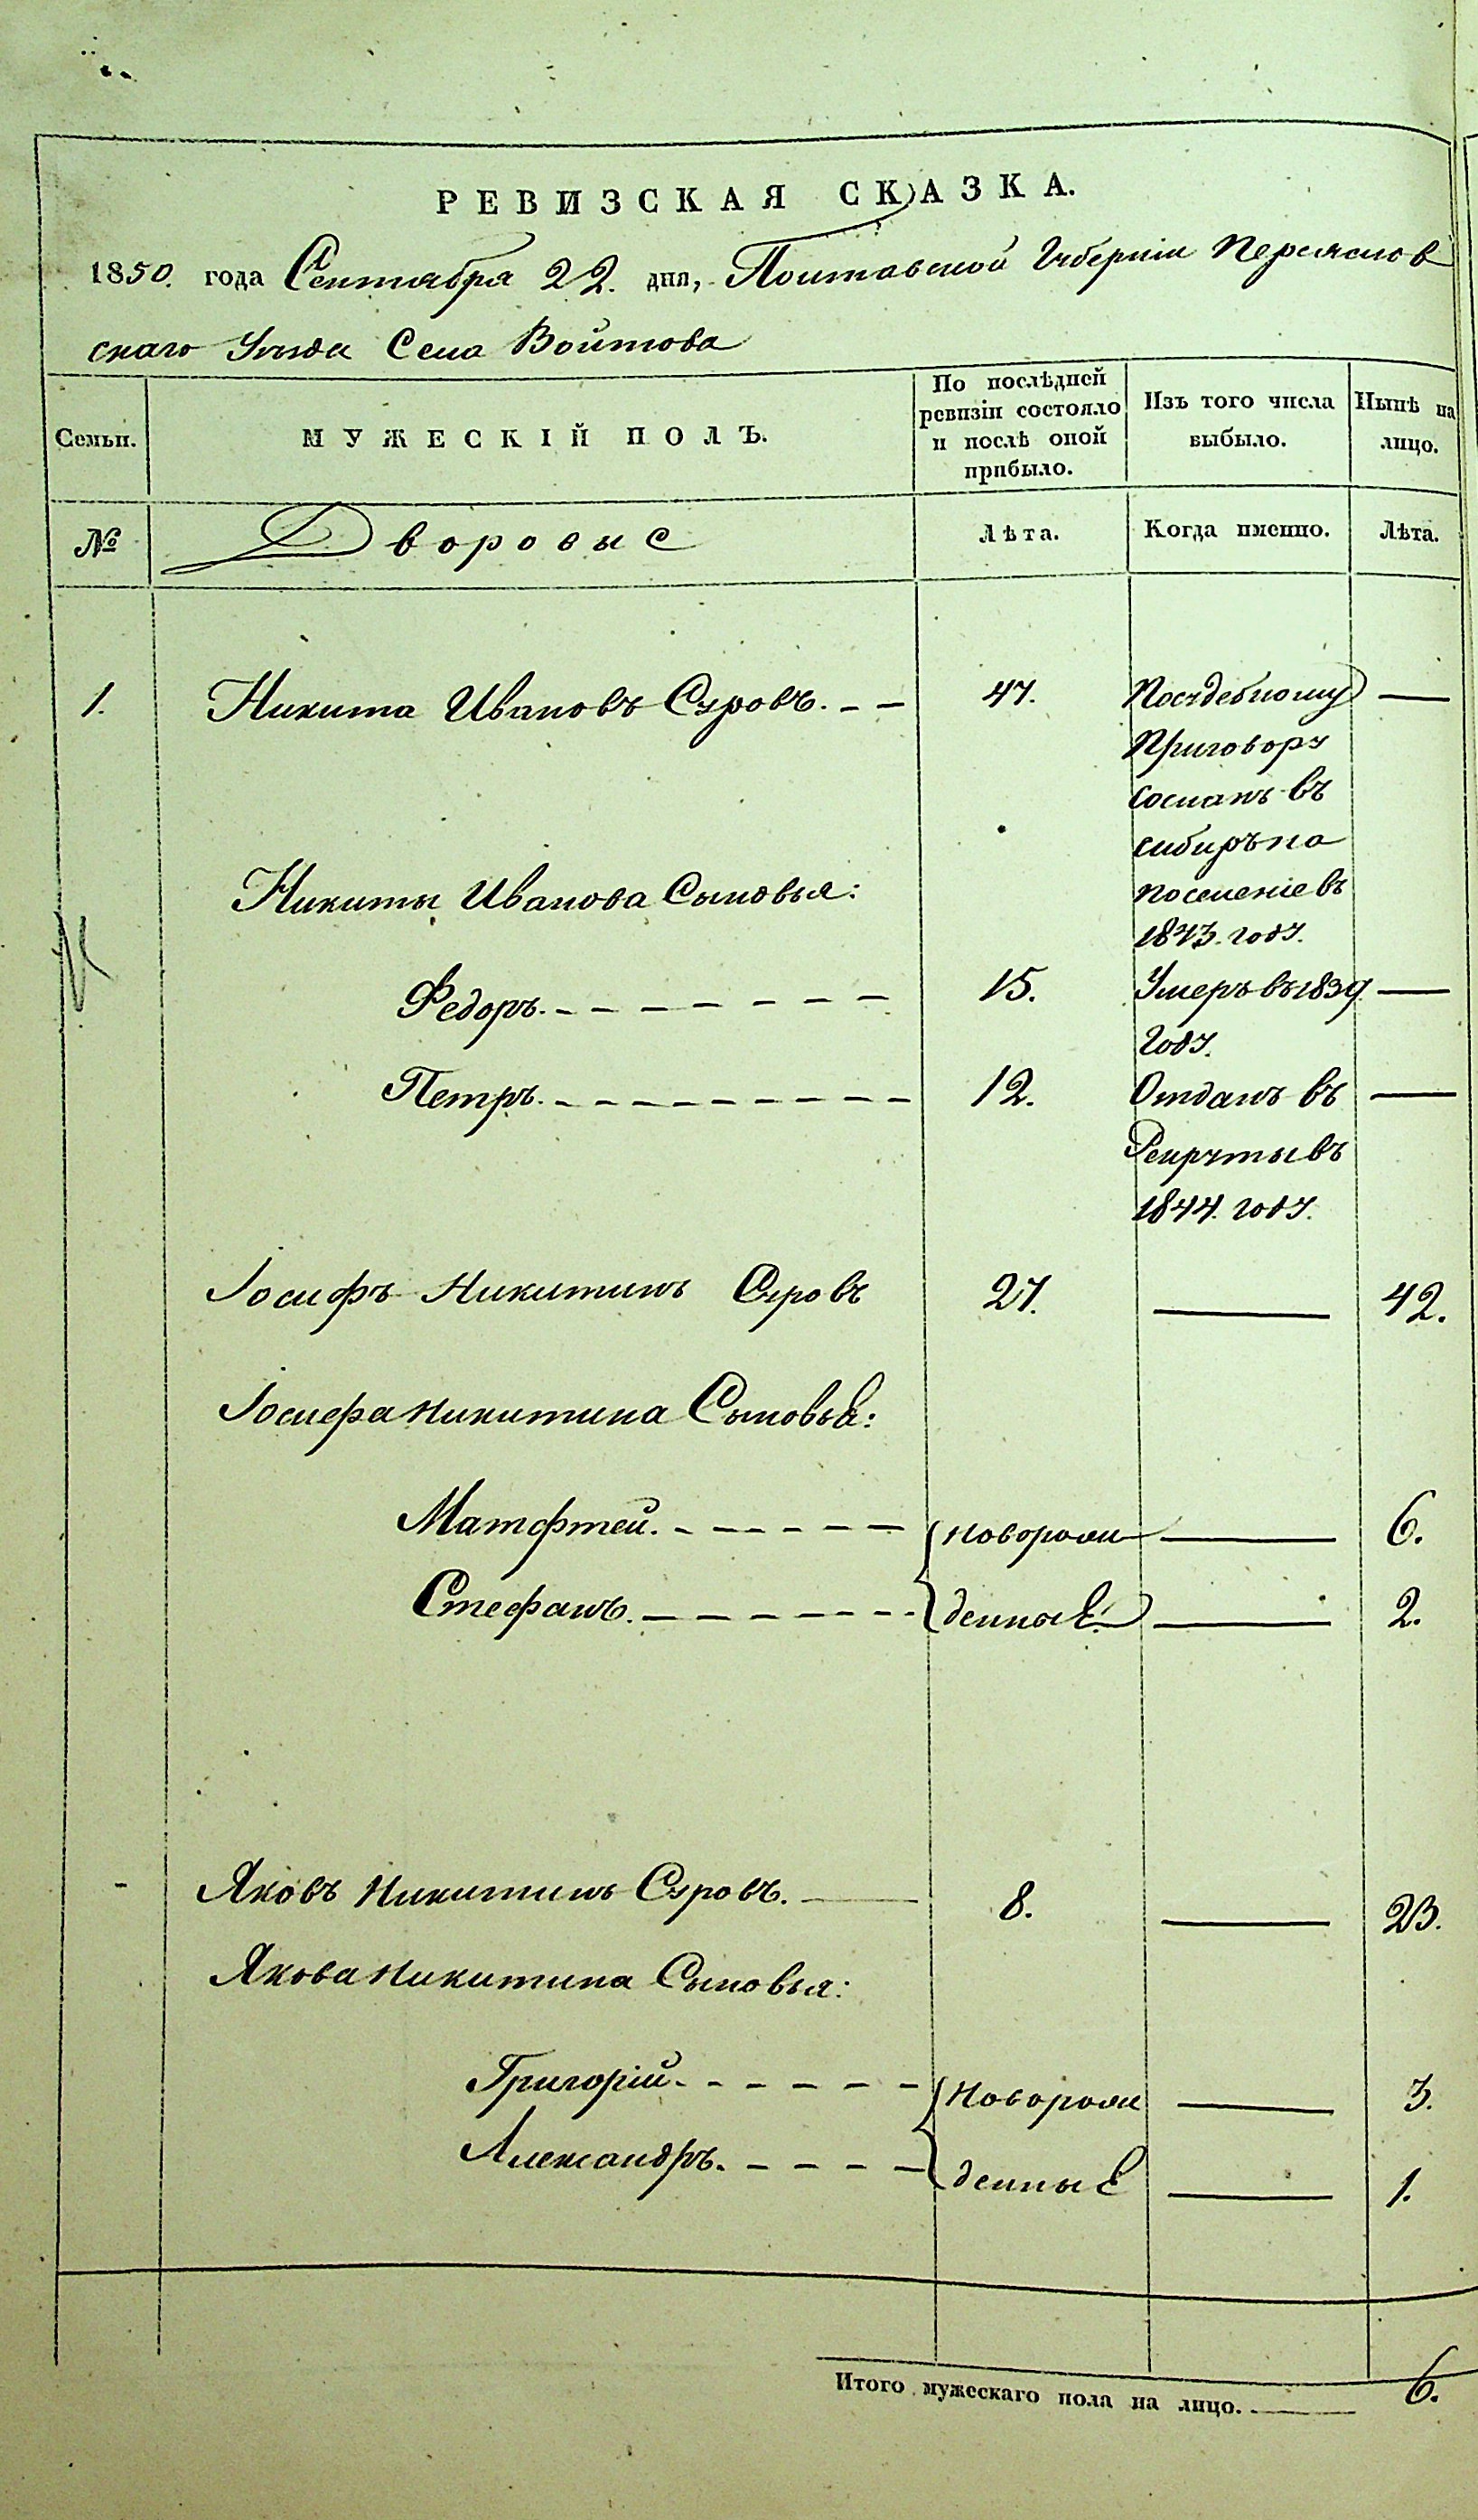 РЕВИЗСКАЯ СКАЗКА.
1850. года Сентября 22. дня, Полтавской Губерніи Переяслов
скаго Уѣзда Села Войтова
Семьи.
МУЖЕСКІЙ ПОЛЪ.
По послѣдней
ревизіи состояло
и послѣ оной
прибыло.
Изъ того числа
выбыло.
Нынѣ на
лицо.
№
Дворовые
Лѣта.
Когда именно.
Лѣта.
1. Никита Ивановъ Суровъ. 47. Посудебному —
Приговору
сосланъ въ
сибирь на
поселеніе въ
1843. году.
Никиты Иванова Сыновья:
Федоръ. 15. Умеръ въ 1839 —
году.
Петръ. 12. Отданъ въ —
Рекруты въ
1844. году.
Іосифъ Никитинъ Суровъ 27. — 42.
Іосифа Никитина Сыновья:
Матфтей. новорож — 6.
Стефанъ. денные. — 2.
Яковъ Никитинъ Суровъ. — 8. — 23.
Якова Никитина Сыновья:
Григорій. Новорож — 3.
Александръ. денные — 1.
Итого мужескаго пола на лицо. — 6.